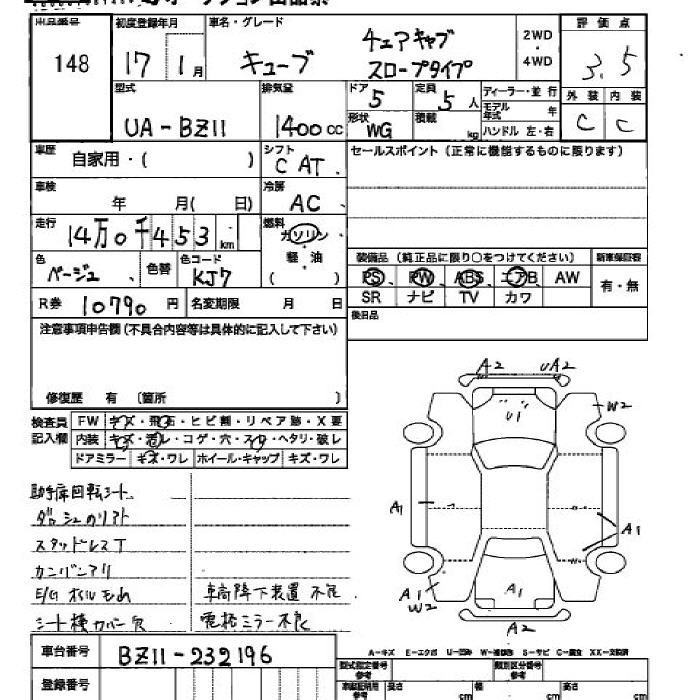 出品番号 初度登録年月 車名・グレード 2WD・4WD 評価点
148 17 1月 キューブ チェアキャブ スロープタイプ 3.5
型式 排気量 ドア 定員 ディーラー・並行 外装 内装
UA-BZ11 1400cc 5 5人 モデル年式 年 C C
形状 積載 ハンドル 左・右
WG kg
車歴 自家用・( ) シフト C AT セールスポイント(正常に機能するものに限ります)
車検 年 月( 日) 冷房 AC
走行 14万0千453km 燃料 ガソリン・軽油 ( )
色 ベージュ 色替 色コード KJ7
装備品(純正品に限り○をつけてください) 新車保証書
PS PW ABS エアB AW 有・無
SR ナビ TV カワ
R券 10790円 名変期限 月 日 後日品
注意事項申告欄(不具合内容等は具体的に記入して下さい)
修復歴 有 〔箇所 〕
検査員記入欄 FW キズ・飛石・ヒビ割・リペア跡・X要
内装 キズ・汚レ・コゲ・穴・スレ・ヘタリ・破レ
ドアミラー キズ・ワレ ホイール・キャップ キズ・ワレ
助手席回転シート
スタッドレスT
カンバンアリ
E/Gオイルもれ 車高降下装置 不良
電格ミラー不良
A2 UA2
U1 W2
A1 A1
A1 W2 A1
A2
車台番号 BZ11-232196
登録番号
A-キズ E-エクボ U-凹み W-補修跡 S-サビ C-腐食 XX-交換済
型式指定番号 参考 類別区分番号 参考
長さ cm 幅 cm 高さ cm